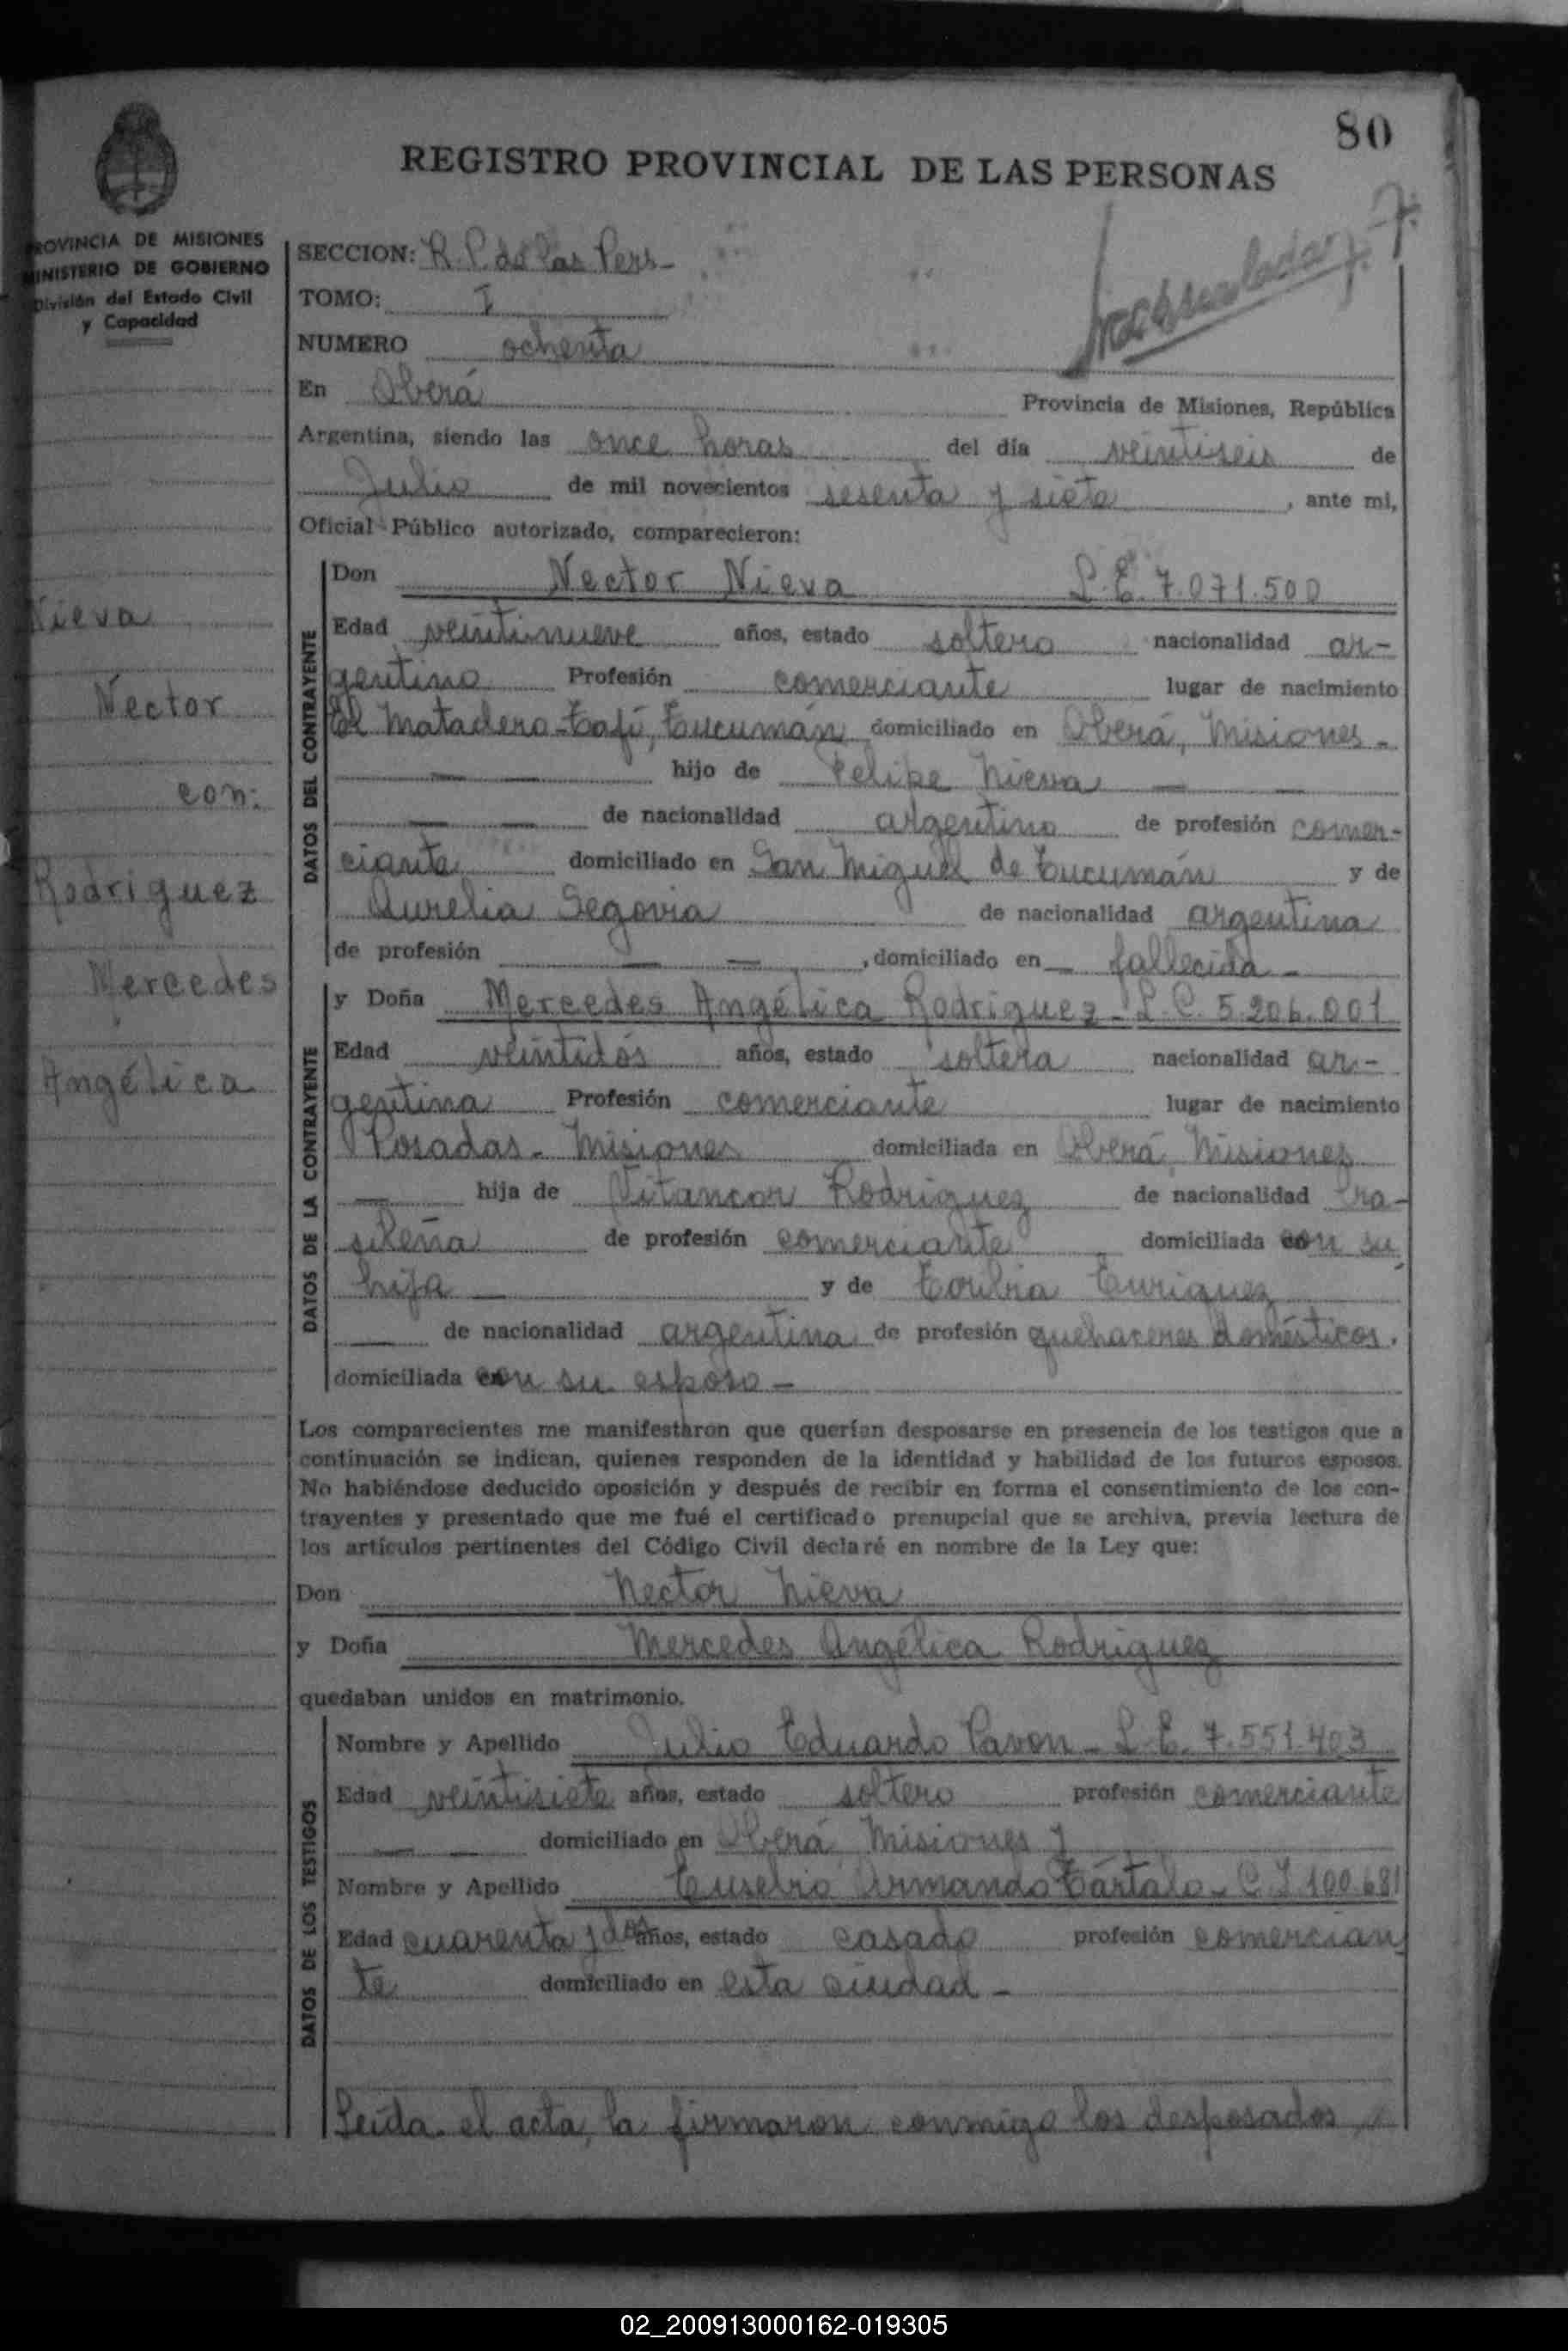 80
REGISTRO PROVINCIAL DE LAS PERSONAS
PROVINCIA DE MISIONES
MINISTERIO DE GOBIERNO
División del Estado Civil
y Capacidad
SECCION: R. P. de las Pers-
TOMO: I
NUMERO ochenta
En Oberá Provincia de Misiones, República
Argentina, siendo las once horas del día veintiseis de
Julio de mil novecientos sesenta y siete, ante mi,
Oficial Público autorizado, comparecieron:
DATOS DEL CONTRAYENTE
Don Nector Nieva L.E. 7.071.500
Edad veintinueve años, estado soltero nacionalidad ar-
gentino Profesión comerciante lugar de nacimiento
El Matadero-Tafí, Tucumán domiciliado en Oberá, Misiones-
hijo de Felipe Nieva
de nacionalidad argentino de profesión comer-
ciante domiciliado en San Miguel de Tucumán y de
Aurelia Segovia de nacionalidad argentina
de profesión — —, domiciliado en — fallecida-
DATOS DE LA CONTRAYENTE
y Doña Mercedes Angélica Rodriguez- L.C. 5.206.001
Edad veintidós años, estado soltera nacionalidad ar-
gentina Profesión comerciante lugar de nacimiento
Posadas- Misiones domiciliada en Oberá, Misiones
— hija de Vitancor Rodriguez de nacionalidad bra-
sileña de profesión comerciante domiciliada con su
hija — y de Toribia Enriquez
— de nacionalidad argentina de profesión quehaceres domésticos,
domiciliada con su esposo-
Los comparecientes me manifestaron que querían desposarse en presencia de los testigos que a
continuación se indican, quienes responden de la identidad y habilidad de los futuros esposos.
No habiéndose deducido oposición y después de recibir en forma el consentimiento de los con-
trayentes y presentado que me fué el certificado prenupcial que se archiva, previa lectura de
los artículos pertinentes del Código Civil declaré en nombre de la Ley que:
Don Nector Nieva
y Doña Mercedes Angélica Rodriguez
quedaban unidos en matrimonio.
DATOS DE LOS TESTIGOS
Nombre y Apellido Julio Eduardo Pavon- L.E. 7.551.403
Edad veintisiete años, estado soltero profesión comerciante
— — domiciliado en Oberá Misiones y
Nombre y Apellido Eusebio Armando Tártalo- C.I. 100.681
Edad cuarenta y dos años, estado casado profesión comercian
te domiciliado en esta ciudad-
Leída el acta, la firmaron conmigo los desposados
Nieva
Nector
con:
Rodriguez
Mercedes
Angélica
02_200913000162-019305